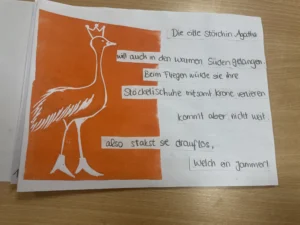 Die alte Störchin Agatha
will auch in den warmen Süden gelangen.
Beim Fliegen würde sie ihre
Stöckelschuhe mitsamt Krone verlieren
kommt aber nicht weit
also stakst sie drauflos,
Welch ein Jammer!